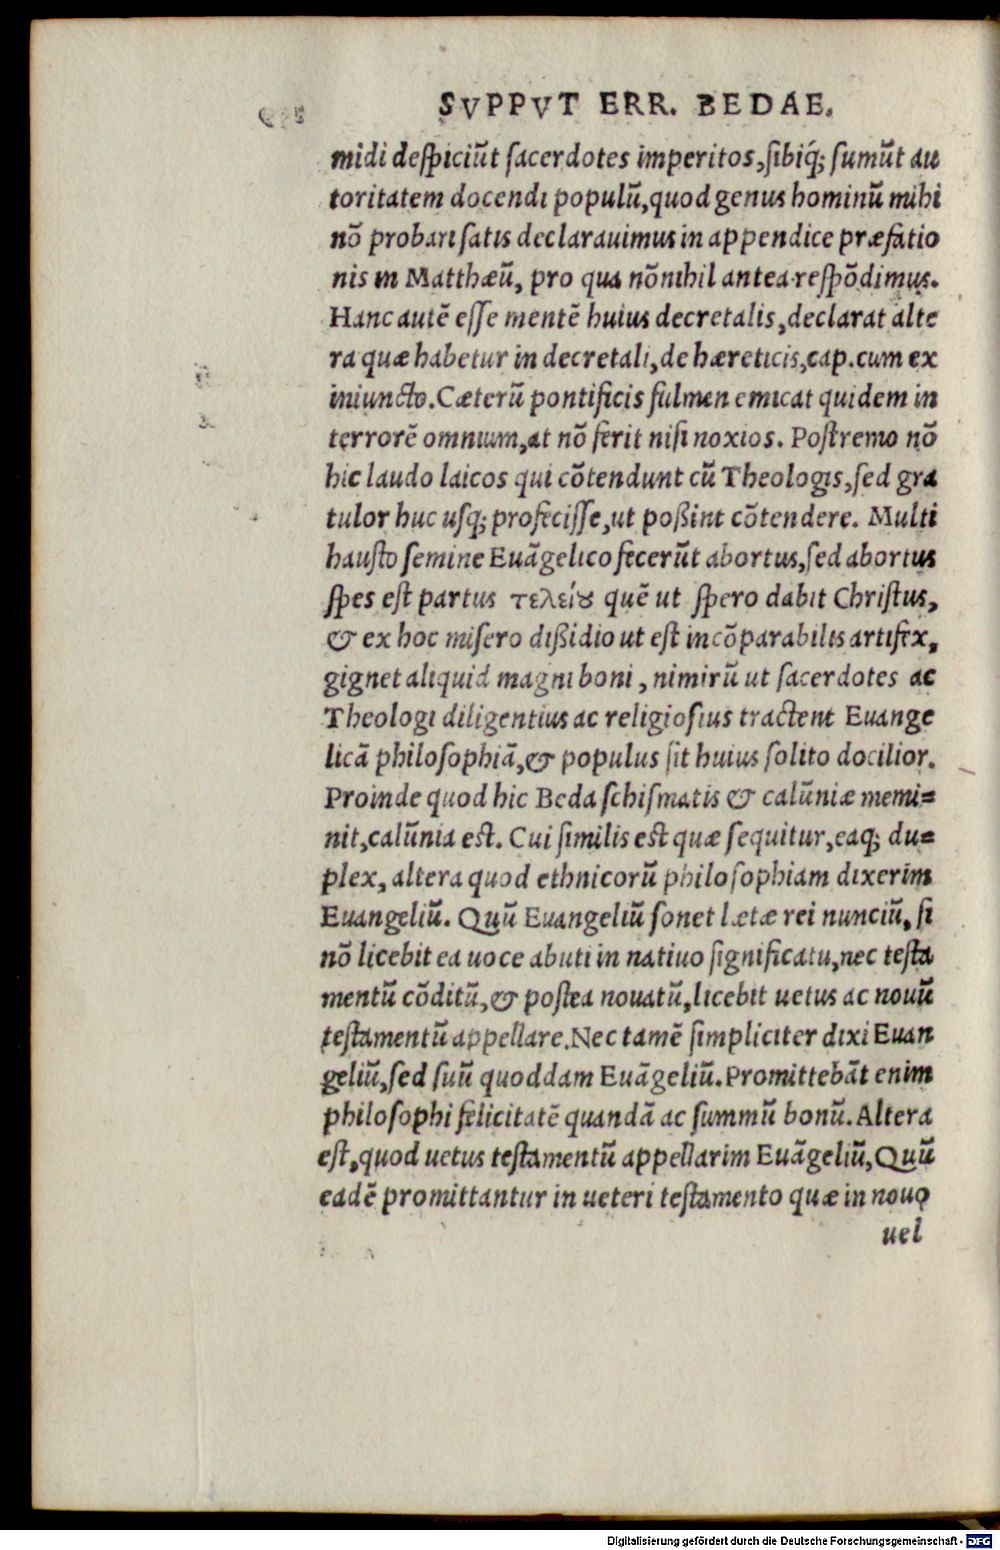 SVPPVT ERR. BEDAE.
midi despiciūt sacerdotes imperitos, sibiq́; sumūt au
toritatem docendi populū, quod genus hominū mihi
nō probari satis declarauimus in appendice præfatio
nis in Matthæū, pro qua nōnihil antea respōdimus.
Hanc autē esse mentē huius decretalis, declarat alte
ra quæ habetur in decretali, de hæreticis, cap. cum ex
iniuncto. Cæterū pontificis fulmen emicat quidem in
terrorē omnium, at nō ferit nisi noxios. Postremo nō
hic laudo laicos qui cōtendunt cū Theologis, sed gra
tulor huc usq; profecisse, ut poßint cōtendere. Multi
hausto semine Euāgelico fecerūt abortus, sed abortus
spes est partus τελείȣ quē ut spero dabit Christus,
& ex hoc misero dißidio ut est incōparabilis artifex,
gignet aliquid magni boni, nimirū ut sacerdotes ac
Theologi diligentius ac religiosius tractent Euange
licā philosophiā, & populus sit huius solito docilior.
Proinde quod hic Beda schismatis & calūniæ memi=
nit, calūnia est. Cui similis est quæ sequitur, eaq; du=
plex, altera quod ethnicorū philosophiam dixerim
Euangeliū. Quū Euangeliū sonet lætæ rei nunciū, si
nō licebit ea uoce abuti in natiuo significatu, nec testa
mentū cōditū, & postea nouatū, licebit uetus ac nouū
testamentū appellare. Nec tamē simpliciter dixi Euan
geliū, sed suū quoddam Euāgeliū. Promittebāt enim
philosophi felicitatē quandā ac summū bonū. Altera
est, quod uetus testamentū appellarim Euāgeliū, Quū
eadē promittantur in ueteri testamento quæ in nouo
uel
Digitalisierung gefördert durch die Deutsche Forschungsgemeinschaft - DFG